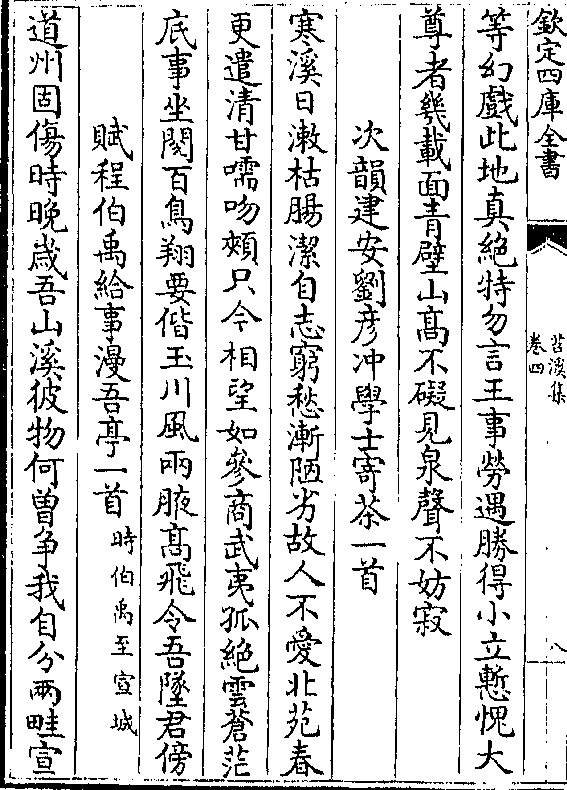 欽定四庫全書
苕溪集
卷四
八
等幻戲此地真絶特勿言王事勞遇勝得小立慙愧大
尊者幾載面青壁山髙不礙見泉聲不妨寂
次韻建安劉彦冲學士寄茶一首
寒溪日潄枯腸潔自志窮愁漸陋劣故人不愛北苑春
更遣清甘嚅吻頰只今相望如參商武夷孤絶雲蒼茫
底事坐閲百鳥翔要偕玉川風兩腋髙飛令吾墜君傍
賦程伯禹給事漫吾亭一首時伯禹至宣城
道州固傷時晚嵗吾山溪彼物何曽争我自分兩畦宣